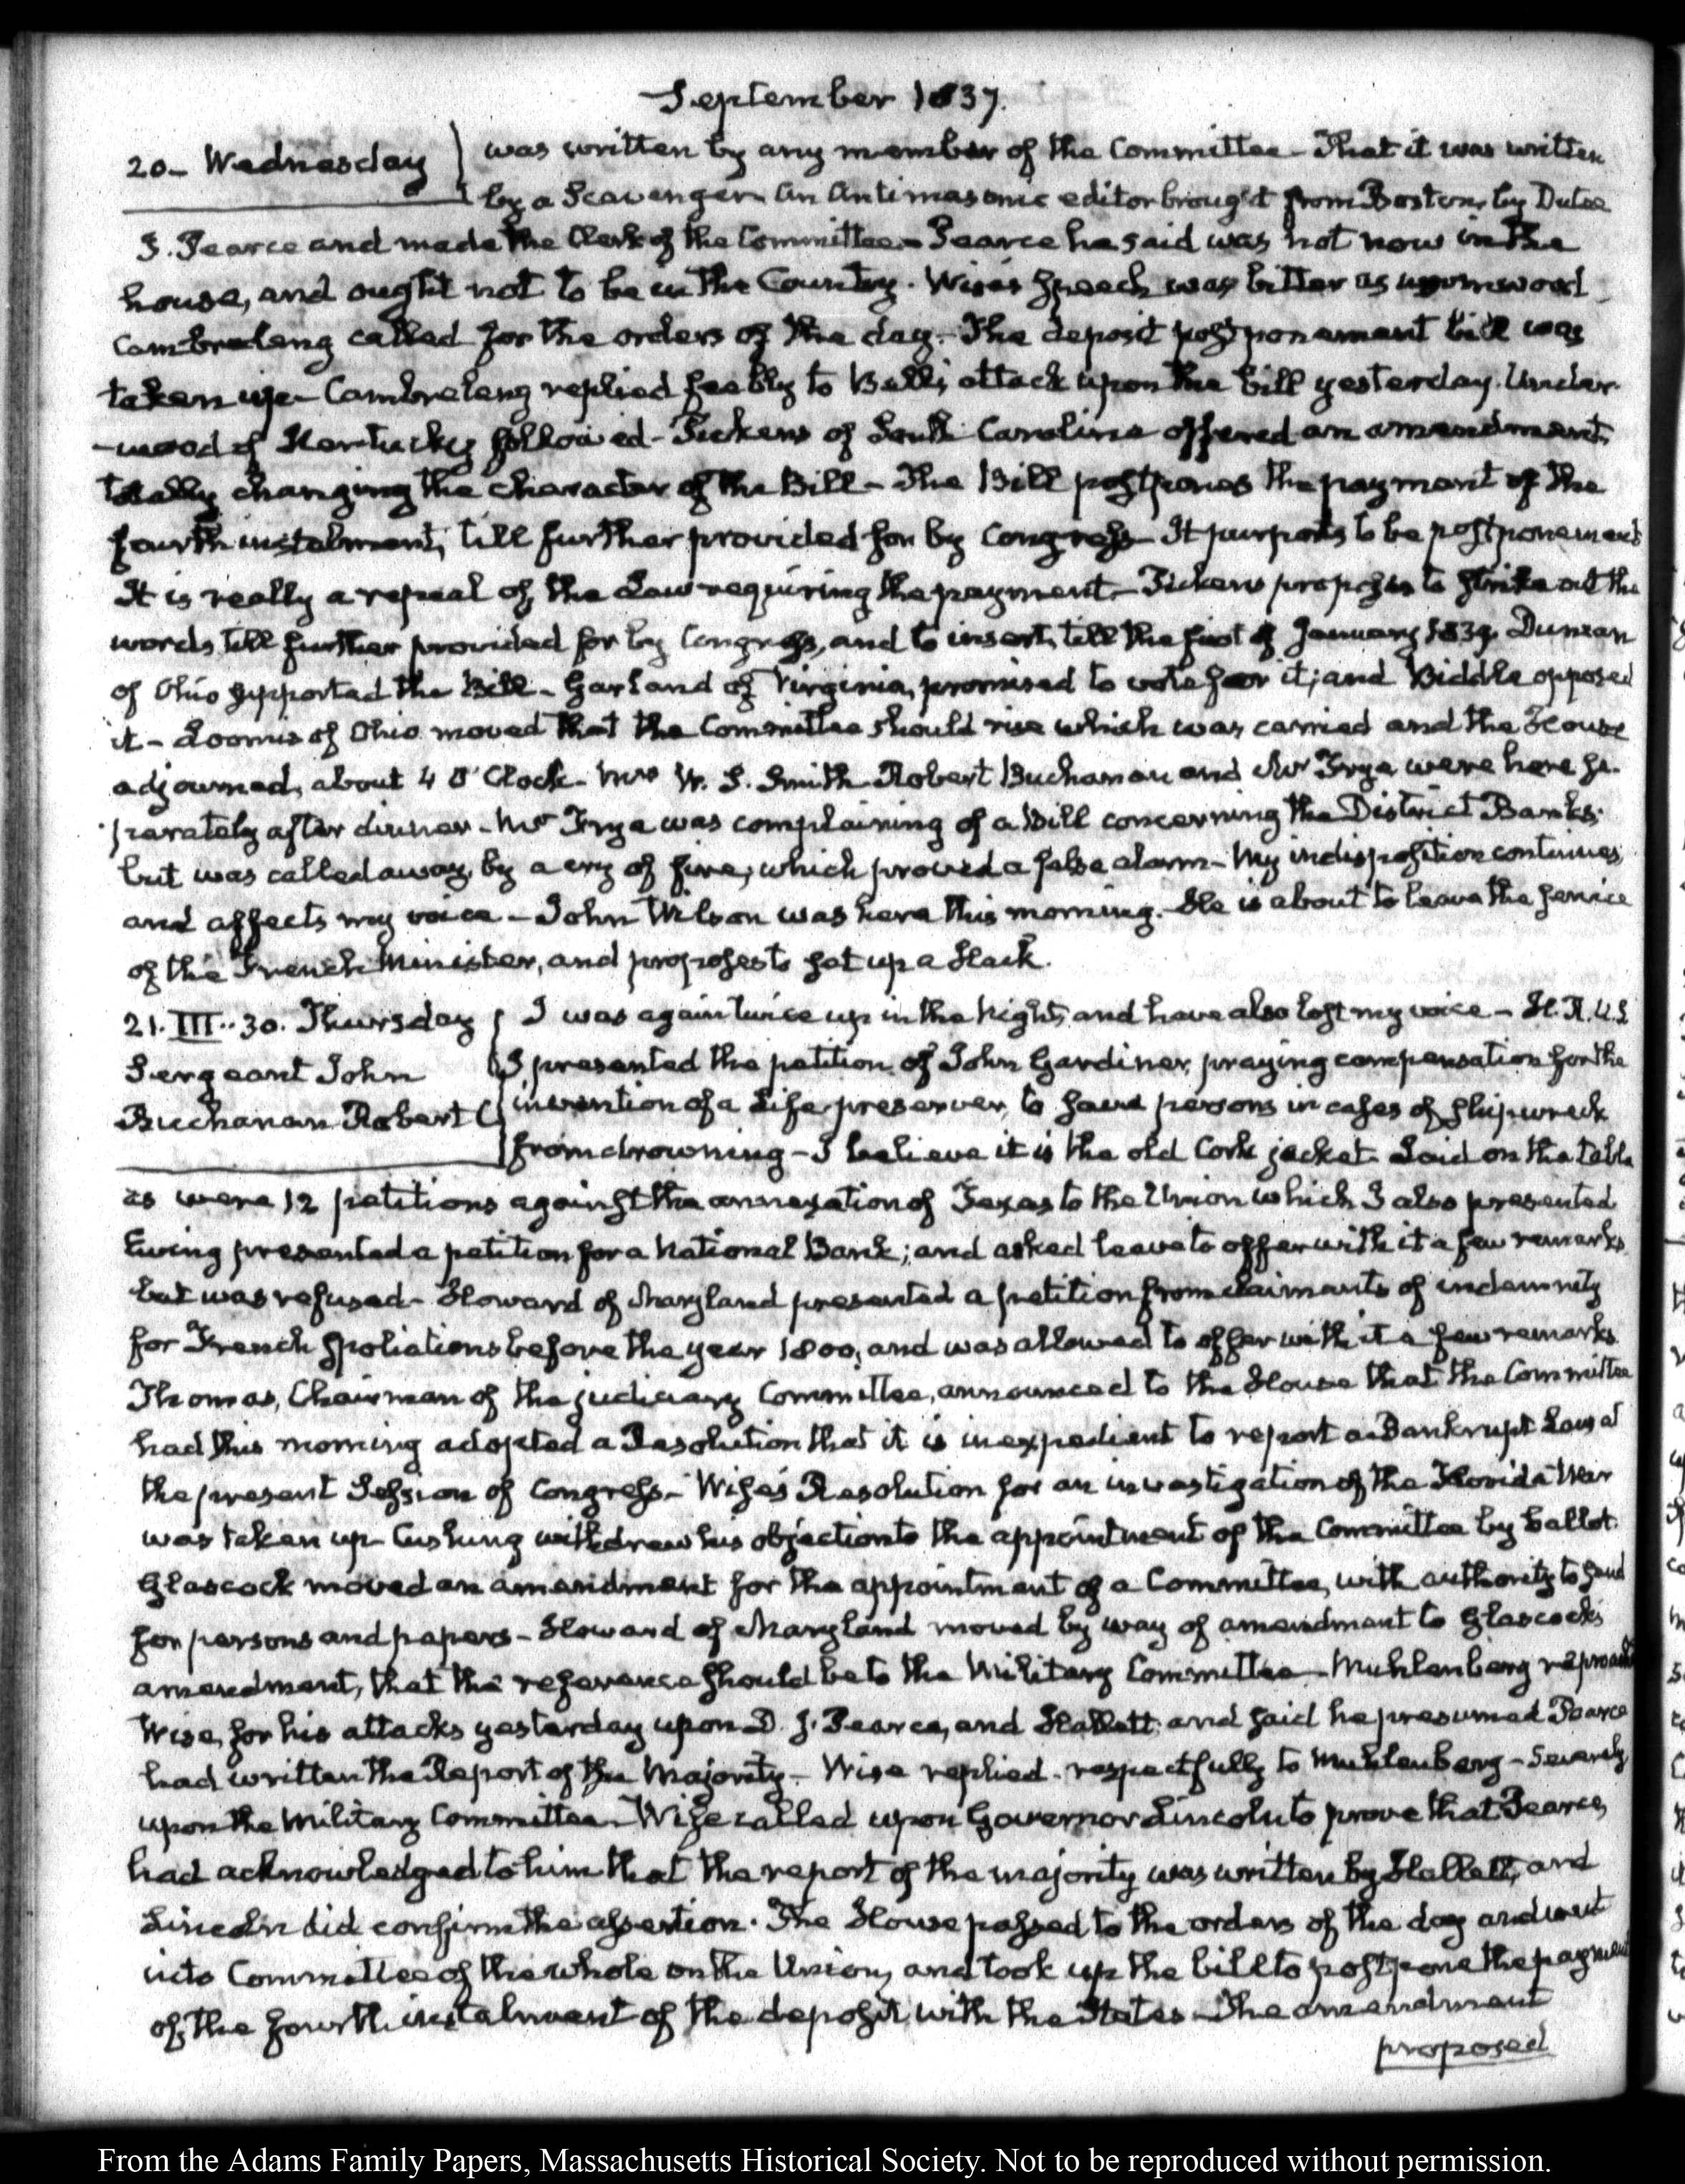 September 1837.
20- Wednesday
was written by any member of the Committee - That it was written
by a Scavenger an Antimasonic editor brought from Boston, by Dutee
J. Pearce and made the Clerk of the Committee - Pearce he said was not now in the
house, and ought not to be in the Country. Wise's speech was bitter as wormwood
Cambreleng called for the orders of the day - The deposit postponement bill was
taken up - Cambreleng replied feebly to Bell's attack upon the bill yesterday. Under-
-wood of Kentucky followed - Pickens of South Carolina offered an amendment,
totally changing the character of the Bill - The Bill postpones the payment of the
fourth instalment, till further provided for by Congress - It purports to be postponement
It is really a repeal of the Law requiring the payment - Pickens proposes to strike out the
words till further provided for by Congress, and to insert, till the first of January 1839. Duncan
of Ohio supported the Bill - Garland of Virginia, promised to vote for it; and Biddle opposed
it - Loomis of Ohio moved that the Committee should rise which was carried and the House
adjourned, about 4 O'Clock - Mrs W. S. Smith Robert Buchanan and Mr Frye were here se-
parately after dinner - Mr Frye was complaining of a Bill concerning the District Banks;
but was called away, by a cry of fire, which proved a false alarm - My indisposition continues
and affects my voice - John Wilson was here this morning. He is about to leave the service
of the French Minister, and proposes to set up a Hack.
21. III.. 30. Thursday
Sergeant John
Buchanan Robert
I was again twice up in the night, and have also lost my voice - H. R. U.S
I presented the petition of John Gardiner, praying compensation for the
invention of a Life preserver, to save persons in cases of shipwreck
from drowning - I believe it is the old Cork jacket. Laid on the table
as were 12 petitions against the annexation of Texas to the Union which I also presented
Ewing presented a petition for a National Bank; and asked leave to offer with it a few remarks
but was refused - Howard of Maryland presented a petition from claimants of indemnity
for French spoliations before the year 1800, and was allowed to offer with it a few remarks.
Thomas, Chairman of the judiciary Committee, announced to the House that the Committee
had this morning adopted a Resolution that it is inexpedient to report a Bankrupt Law at
the present Session of Congress - Wise's Resolution for an investigation of the Florida War
was taken up - Cushing withdrew his objection to the appointment of the Committee by ballot.
Glascock moved an amendment for the appointment of a Committee, with authority to send
for persons and papers - Howard of Maryland moved by way of amendment to Glascock's
amendment, that the reference should be to the Military Committee - Muhlenberg reproach
Wise, for his attacks yesterday upon D. J. Pearce, and Hallett, and said he presumed Pearce
had written the Report of the Majority - Wise replied - respectfully to Muhlenberg - severely
upon the Military Committee - Wise called upon Governor Lincoln to prove that Pearce,
had acknowledged to him that the report of the majority was written by Hallett, and
Lincoln did confirm the assertion. The House passed to the orders of the day and went
into Committee of the whole on the Union, and took up the bill to postpone the payment
of the fourth instalment of the deposit with the States - The amendment
proposed
From the Adams Family Papers, Massachusetts Historical Society. Not to be reproduced without permission.